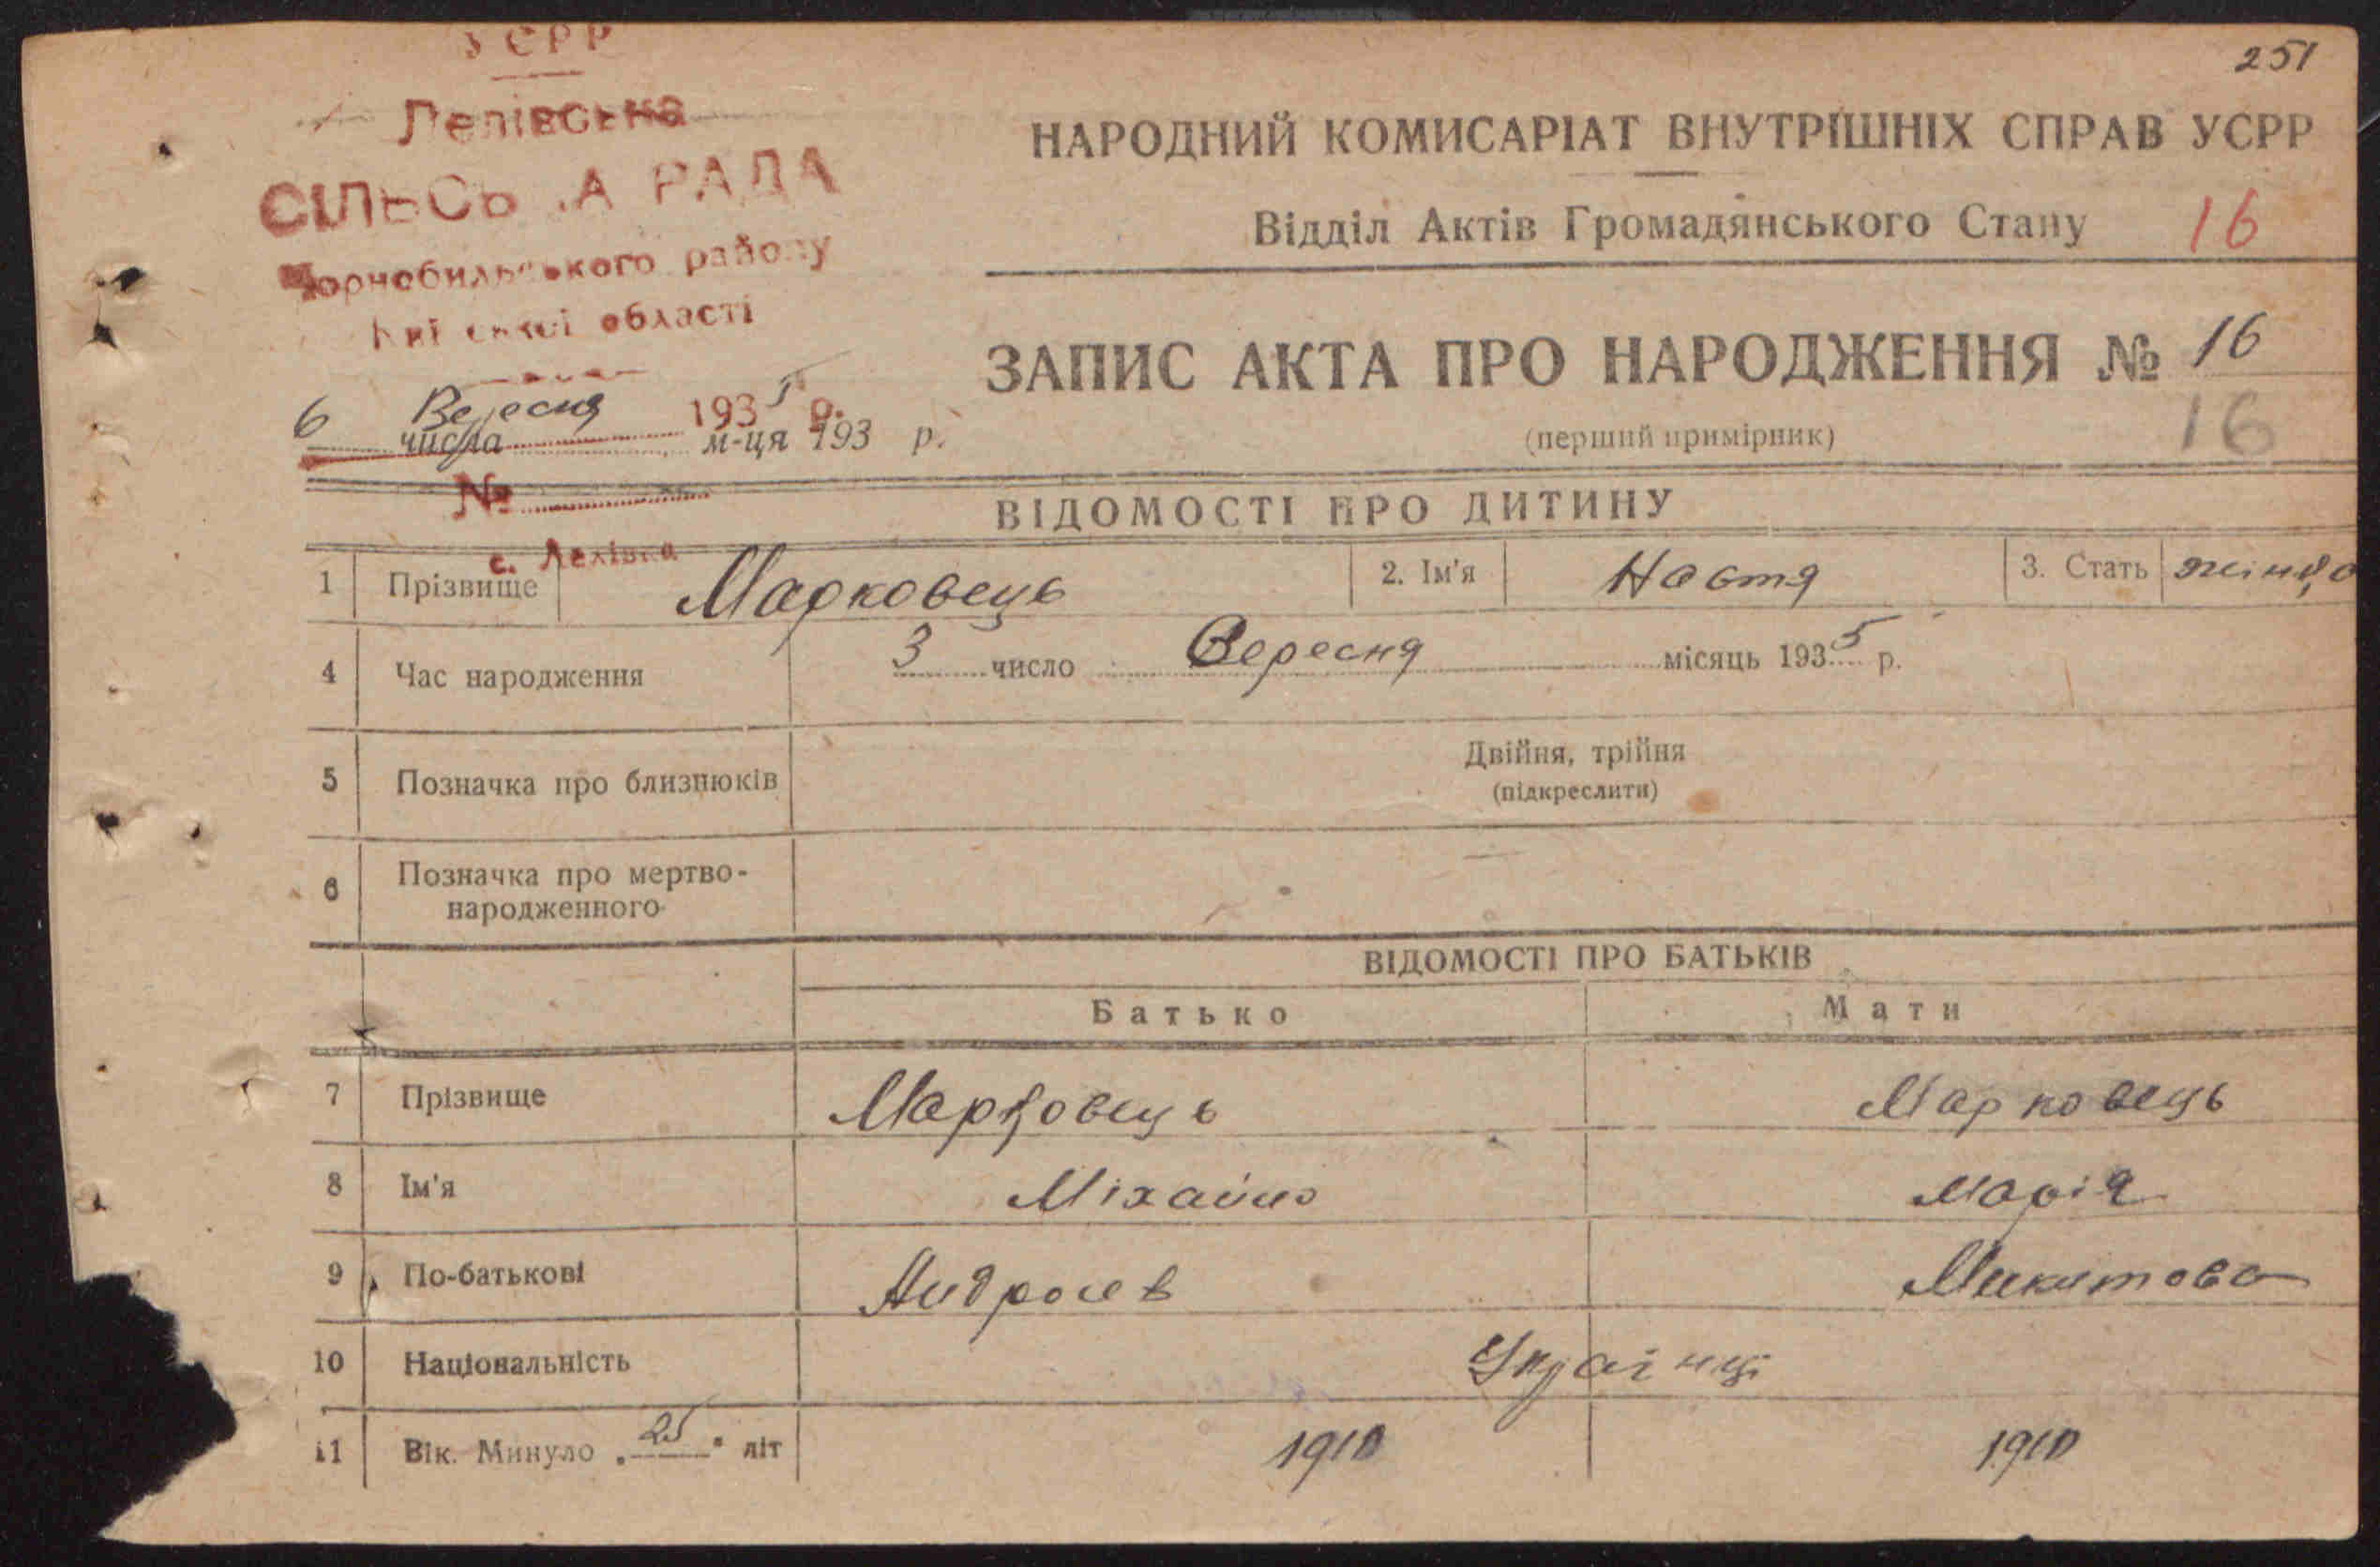 251
УСРР
Лелівська
СІЛЬСЬКА РАДА
Чорнобильського району
Київської області
6 Вересня 1935 р.
числа м-ця 193 р.
№
с. Лелівка
НАРОДНИЙ КОМИСАРІАТ ВНУТРІШНІХ СПРАВ УСРР
Відділ Актів Громадянського Стану 16
ЗАПИС АКТА ПРО НАРОДЖЕННЯ № 16
(перший примірник) 16
ВІДОМОСТІ ПРО ДИТИНУ
1 Прізвище Марковець 2. Ім'я Настя 3. Стать
4 Час народження 3 число Вересня місяць 1935 р.
5 Позначка про близнюків Двійня, трійня
(підкреслити)
6 Позначка про мертво-
народженного
ВІДОМОСТІ ПРО БАТЬКІВ
Батько Мати
7 Прізвище Марковець Марковець
8 Ім'я Міхайло Марія
9 По-батькові Микитова
10 Національність Українці
11 Вік. Минуло „25" літ 1910 1910